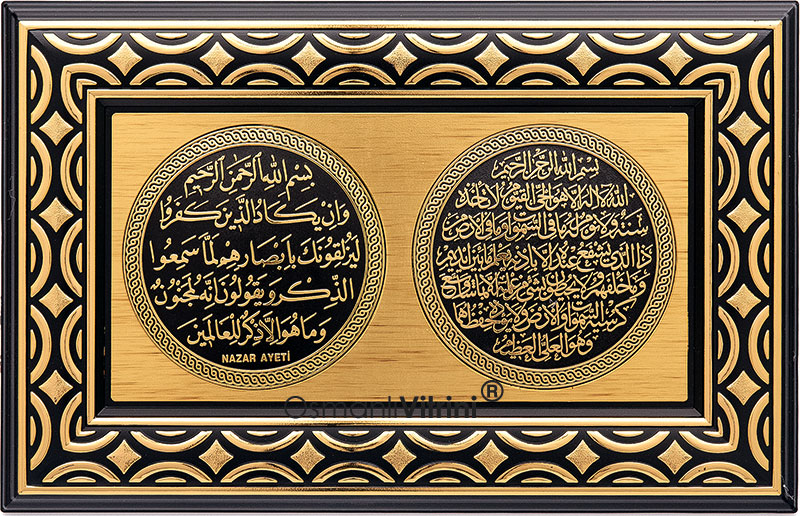 بسم الله الرحمن الرحيم
وان يكاد الذين كفروا
ليزلقونك بابصارهم لما سمعوا
الذكر ويقولون انه لمجنون
وما هو الا ذكر للعالمين
NAZAR AYETİ
بسم الله الرحمن الرحيم
الله لا اله الا هو الحي القيوم لا تأخذه
سنة ولا نوم له ما في السموات وما في الارض من
ذا الذي يشفع عنده الا باذنه يعلم ما بين ايديهم
وما خلفهم ولا يحيطون بشئ من علمه الا بما شاء وسع
كرسيه السموات والارض ولا يؤده حفظهما
وهو العلي العظيم
Osmanlı Vitrini®